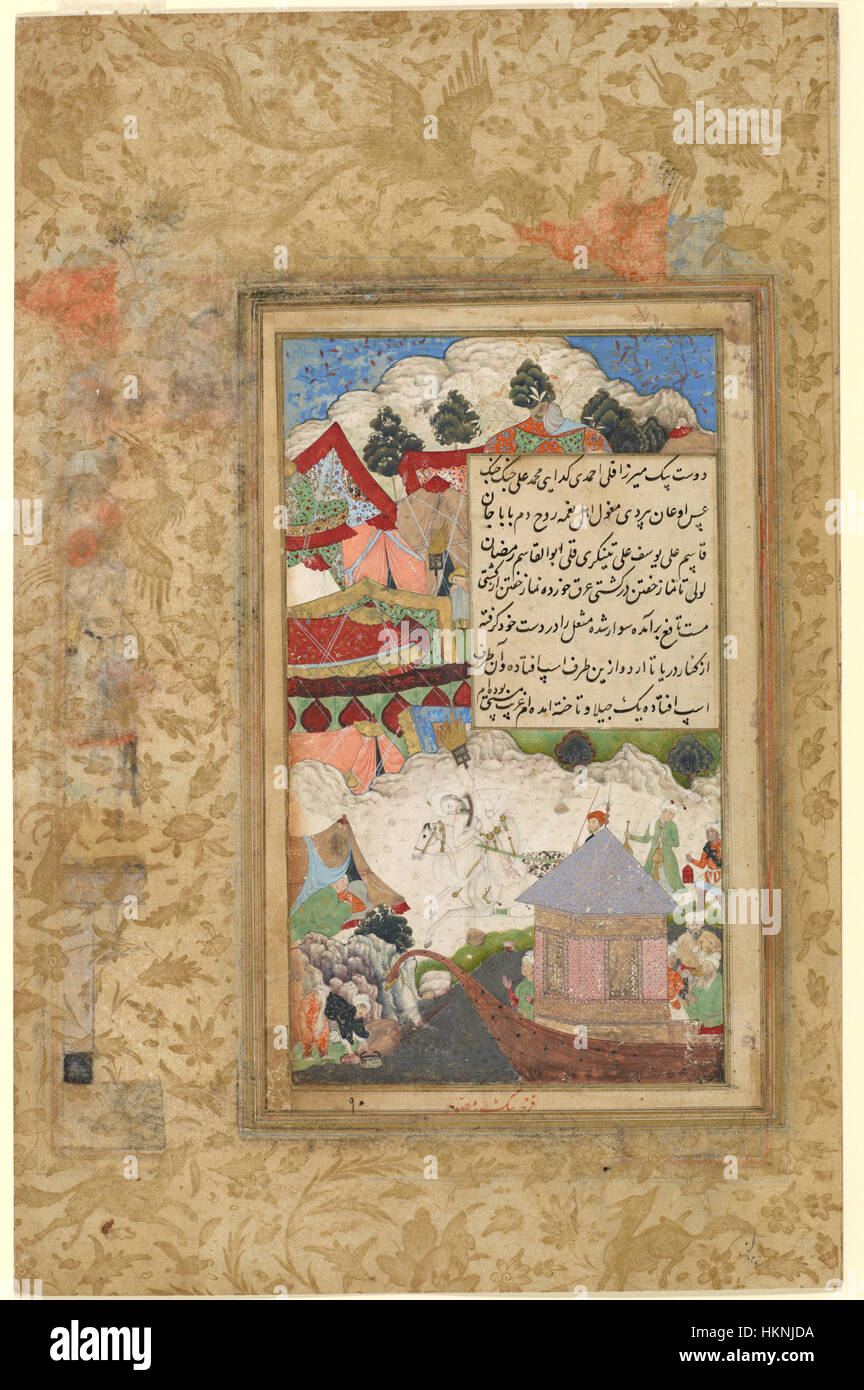 دوست بیک میرزا قلی احمدی کدایی محمد علی جنک جنک
عسس اوغان بردی مغول اهل نغمه روح دم بابا جان
قاسم علی یوسف علی تینکری قلی ابوالقاسم رمضان
لولی تا نماز خفتن در کشتی عرق خورده نماز خفتن از کشتی
مست تافع برآمده سوار شده مشعل را در دست خود کرفته
از کنار دریا تا اردو ازین طرف اسپ افتاده و آن طرف
اسپ افتاده یک جیلاو تاخته آمده ام غریب مستی بوده ام
۹۰
فرخ بیک
alamy
Image ID: HKNJDA
www.alamy.com